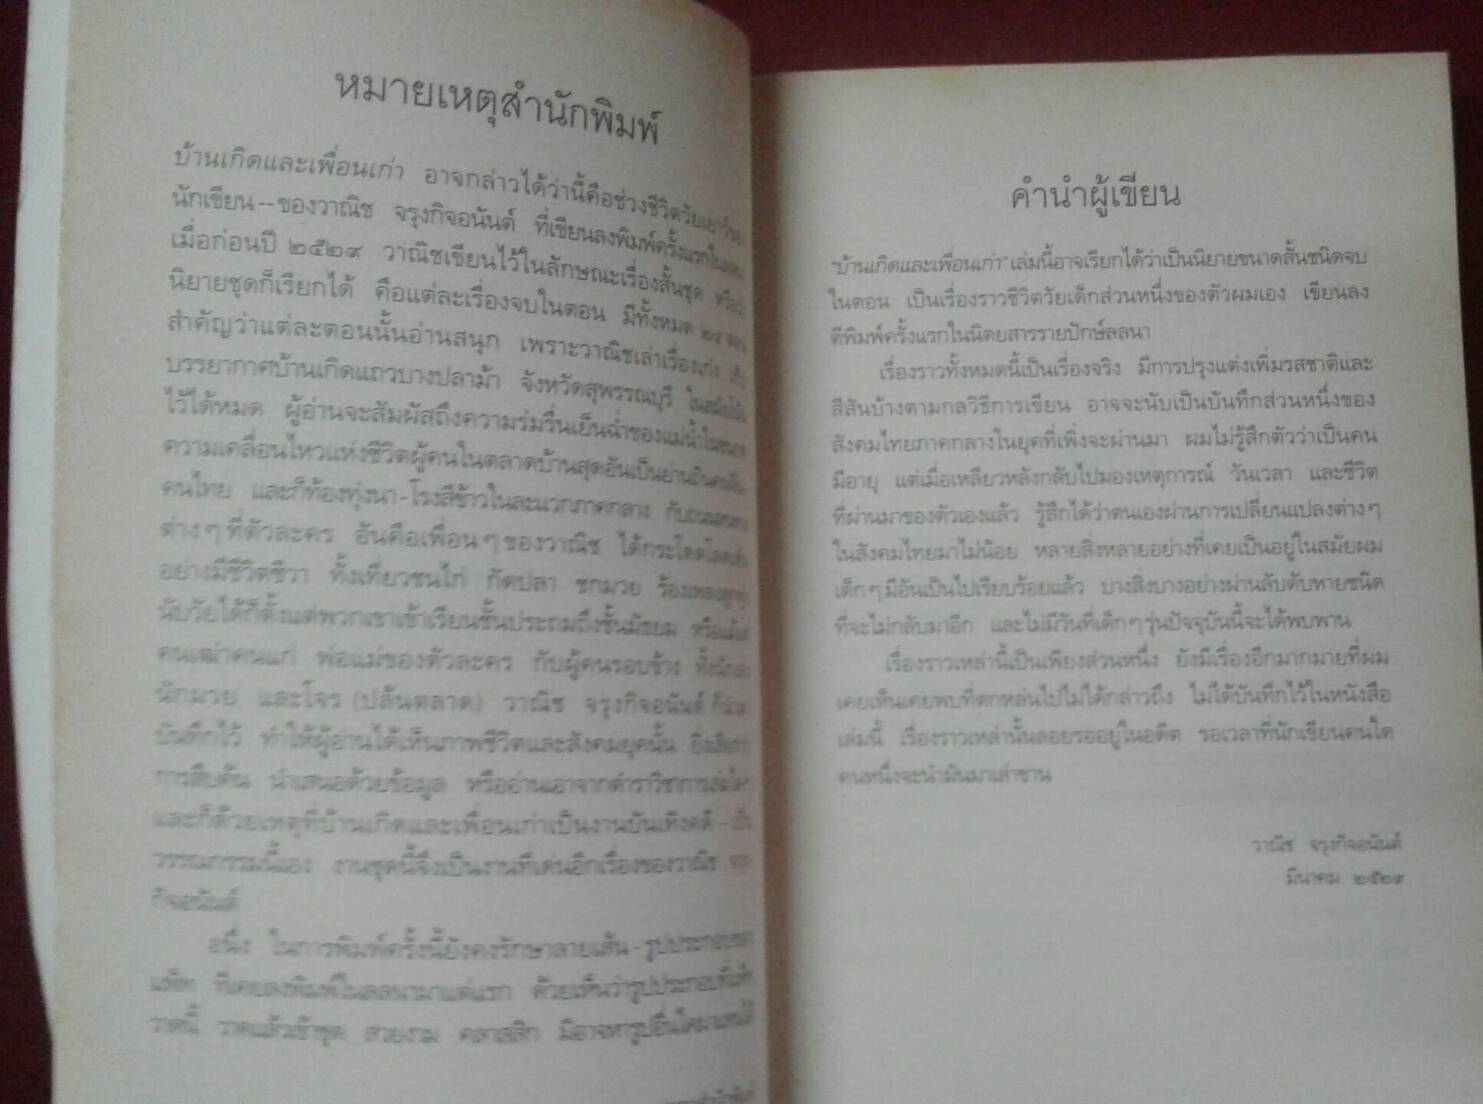 หมายเหตุสำนักพิมพ์
บ้านเกิดและเพื่อนเก่า อาจกล่าวได้ว่านี้คือช่วงชีวิตวัยเยาว์ของ
นักเขียน--ของวาณิช จรุงกิจอนันต์ ที่เขียนลงพิมพ์ครั้งแรกใน
เมื่อก่อนปี ๒๕๒๙ วาณิชเขียนไว้ในลักษณะเรื่องสั้นชุด หรือ
นิยายชุดก็เรียกได้ คือแต่ละเรื่องจบในตอน มีทั้งหมด
สำคัญว่าแต่ละตอนนั้นอ่านสนุก เพราะวาณิชเล่าเรื่องเก่ง เก็บ
บรรยากาศบ้านเกิดแถวบางปลาม้า จังหวัดสุพรรณบุรี
ไว้ได้หมด ผู้อ่านจะสัมผัสถึงความร่มรื่นเย็นฉ่ำของแม่น้ำ
ความเคลื่อนไหวแห่งชีวิตผู้คนในตลาดบ้านสุดอันเป็นย่าน
คนไทย และก็ท้องทุ่งนา-โรงสีข้าวในละแวกภาคกลาง กับ
ต่างๆที่ตัวละคร อันคือเพื่อนๆของวาณิช ได้กระโดดโลดเต้น
อย่างมีชีวิตชีวา ทั้งเที่ยวชนไก่ กัดปลา ชกมวย ร้องเพลงลูกทุ่ง
นับวัยได้ก็ตั้งแต่พวกเขาเข้าเรียนชั้นประถมถึงชั้นมัธยม
คนเฒ่าคนแก่ พ่อแม่ของตัวละคร กับผู้คนรอบข้าง
นักมวย และโจร (ปล้นตลาด) วาณิช จรุงกิจอนันต์
บันทึกไว้ ทำให้ผู้อ่านได้เห็นภาพชีวิตและสังคมยุคนั้น
การสืบค้น นำเสนอด้วยข้อมูล หรืออ่านเอาจากตำราวิชาการ
และก็ด้วยเหตุที่บ้านเกิดและเพื่อนเก่าเป็นงานบันเทิงคดี-เป็น
วรรณกรรมนี้เอง งานชุดนี้จึงเป็นงานที่เด่นอีกเรื่องของวาณิช จรุง
กิจอนันต์
อนึ่ง ในการพิมพ์ครั้งนี้ยังคงรักษาลายเส้น-รูปประกอบของ
ที่เคยลงพิมพ์ในลลนามาแต่แรก ด้วยเห็นว่ารูปประกอบที่
วาดนี้ วาดแล้วเข้าชุด สวยงาม คลาสสิก มิอาจหารูปอื่นใดมาแทนได้
คำนำผู้เขียน
"บ้านเกิดและเพื่อนเก่า"เล่มนี้อาจเรียกได้ว่าเป็นนิยายขนาดสั้นชนิดจบ
ในตอน เป็นเรื่องราวชีวิตวัยเด็กส่วนหนึ่งของตัวผมเอง เขียนลง
ตีพิมพ์ครั้งแรกในนิตยสารรายปักษ์ลลนา
เรื่องราวทั้งหมดนี้เป็นเรื่องจริง มีการปรุงแต่งเพิ่มรสชาติและ
สีสันบ้างตามกลวิธีการเขียน อาจจะนับเป็นบันทึกส่วนหนึ่งของ
สังคมไทยภาคกลางในยุคที่เพิ่งจะผ่านมา ผมไม่รู้สึกตัวว่าเป็นคน
มีอายุ แต่เมื่อเหลียวหลังกลับไปมองเหตุการณ์ วันเวลา และชีวิต
ที่ผ่านมาของตัวเองแล้ว รู้สึกได้ว่าตนเองผ่านการเปลี่ยนแปลงต่างๆ
ในสังคมไทยมาไม่น้อย หลายสิ่งหลายอย่างที่เคยเป็นอยู่ในสมัยผม
เด็กๆมีอันเป็นไปเรียบร้อยแล้ว บางสิ่งบางอย่างผ่านลับดับหายชนิด
ที่จะไม่กลับมาอีก และไม่มีวันที่เด็กๆรุ่นปัจจุบันนี้จะได้พบพาน
เรื่องราวเหล่านี้เป็นเพียงส่วนหนึ่ง ยังมีเรื่องอีกมากมายที่ผม
เคยเห็นเคยพบที่ตกหล่นไปไม่ได้กล่าวถึง ไม่ได้บันทึกไว้ในหนังสือ
เล่มนี้ เรื่องราวเหล่านั้นลอยรออยู่ในอดีต รอเวลาที่นักเขียนคนใด
คนหนึ่งจะนำมันมาเล่าขาน
วาณิช จรุงกิจอนันต์
มีนาคม ๒๕๒๙